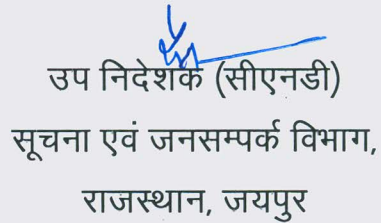 उप निदेशक (सीएनडी)
सूचना एवं जनसम्पर्क विभाग,
राजस्थान, जयपुर